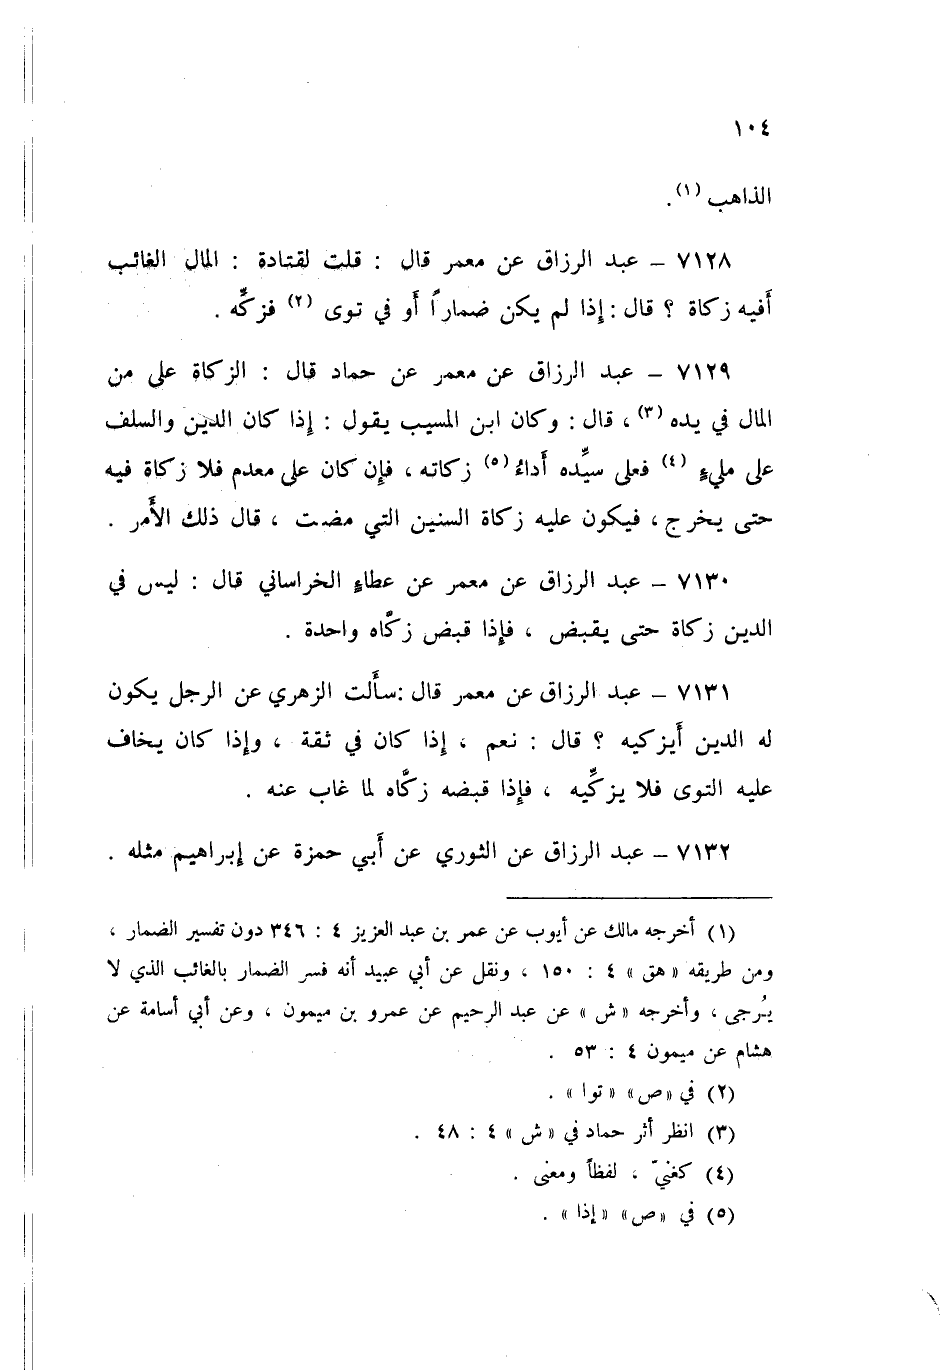 ١٠٤
الذاهب (١) .
٧١٢٨ – عبد الرزاق عن معمر قال : قلت لقتادة : المال الغائب
أَفيه زكاة ؟ قال : إِذا لم يكن ضماراً أَو في توى (٢) فزكِّه .
٧١٢٩ – عبد الرزاق عن معمر عن حماد قال : الزكاة على من
المال في يده (٣) ، قال : وكان ابن المسيب يقول : إِذا كان الدين والسلف
على مليءٍ (٤) فعلى سيِّده أَداءُ (٥) زكاته ، فإِن كان على معدم فلا زكاة فيه
حتى يخرج ، فيكون عليه زكاة السنين التي مضت ، قال ذلك الأَمر .
٧١٣٠ – عبد الرزاق عن معمر عن عطاءٍ الخراساني قال : ليس في
الدين زكاة حتى يقبض ، فإِذا قبض زكَّاه واحدة .
٧١٣١ – عبد الرزاق عن معمر قال : سأَلت الزهري عن الرجل يكون
له الدين أَيزكيه ؟ قال : نعم ، إِذا كان في ثقة ، وإِذا كان يخاف
عليه التوى فلا يزكِّيه ، فإِذا قبضه زكَّاه لما غاب عنه .
٧١٣٢ – عبد الرزاق عن الثوري عن أَبي حمزة عن إِبراهيم مثله .
(١) أخرجه مالك عن أيوب عن عمر بن عبد العزيز ٤ : ٣٤٦ دون تفسير الضمار ،
ومن طريقه «هق» ٤ : ١٥٠ ، ونقل عن أبي عبيد أنه فسر الضمار بالغائب الذي لا
يُرجى ، وأخرجه «ش» عن عبد الرحيم عن عمرو بن ميمون ، وعن أبي أسامة عن
هشام عن ميمون ٤ : ٥٣ .
(٢) في «ص» «توا» .
(٣) انظر أثر حماد في «ش» ٤ : ٤٨ .
(٤) كغنيّ ، لفظاً ومعنى .
(٥) في «ص» «إذا» .